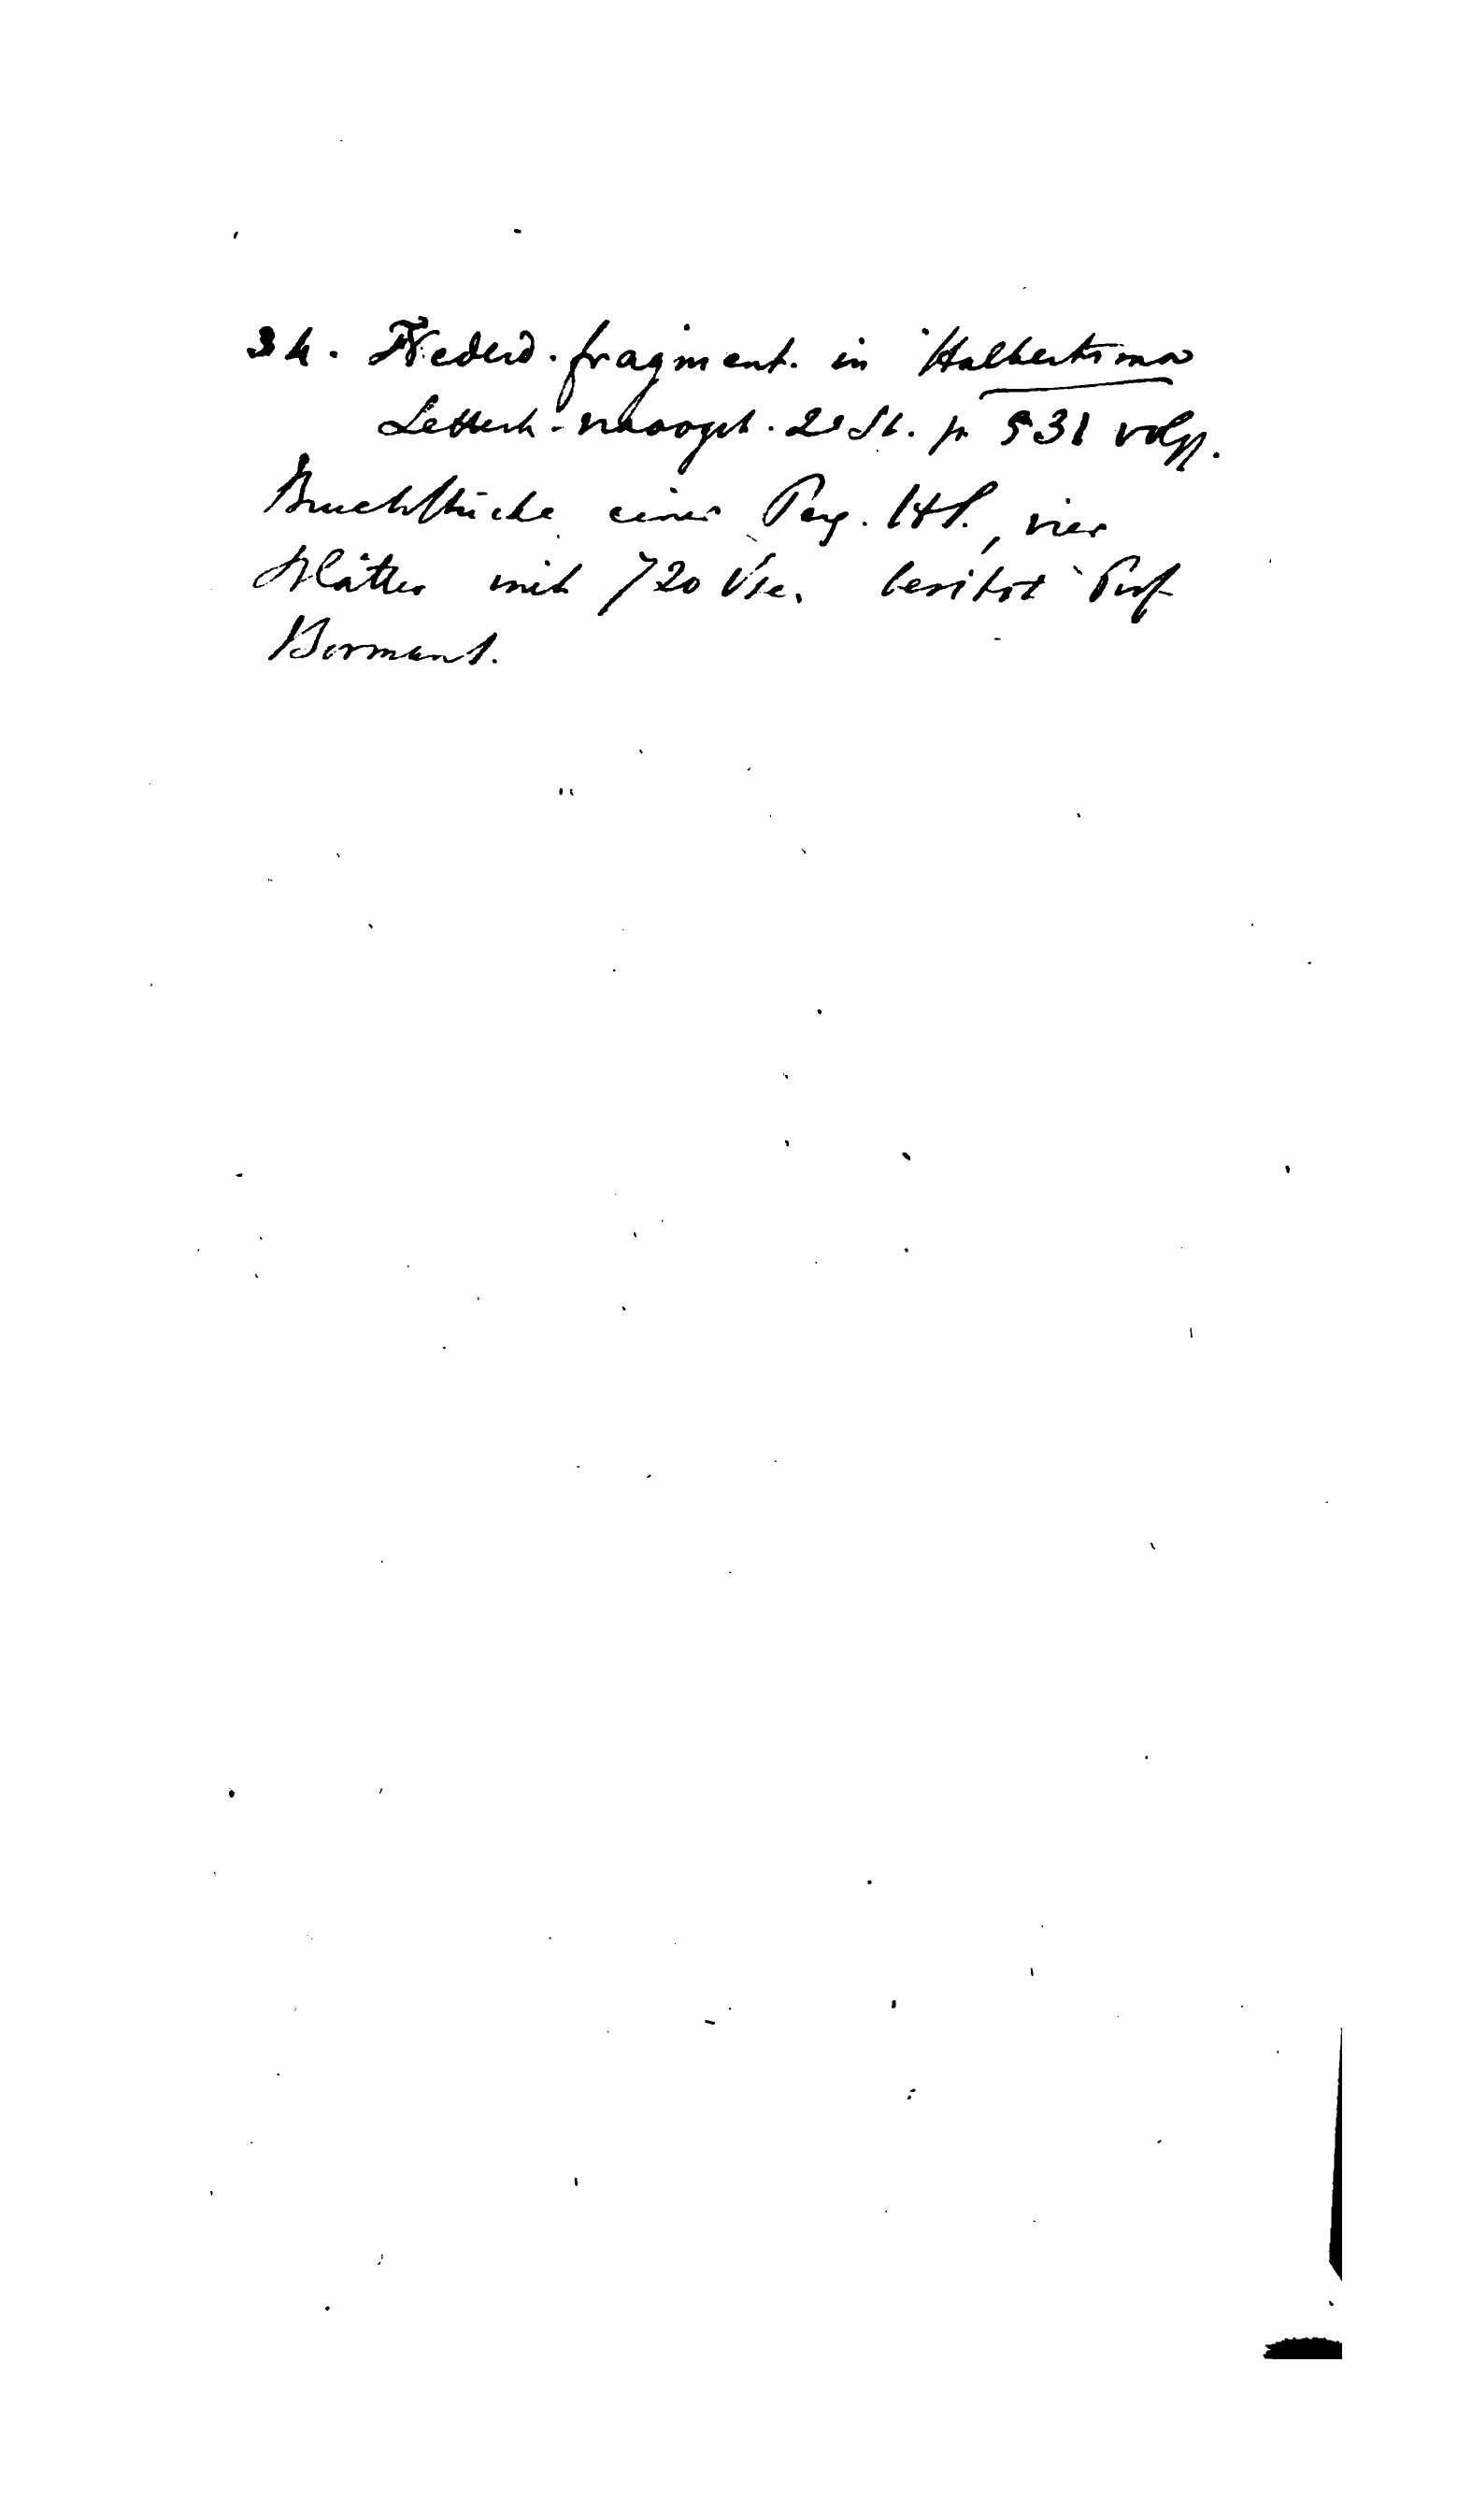 34. Niederd. fragment. in Halbertsma
Letterk. Naoogst. 2e St. p. 531 volg.
Bruchstücke einer Pap. HS., vier
Blätter mit 720 Vse, besitzt Prof.
Bormans.